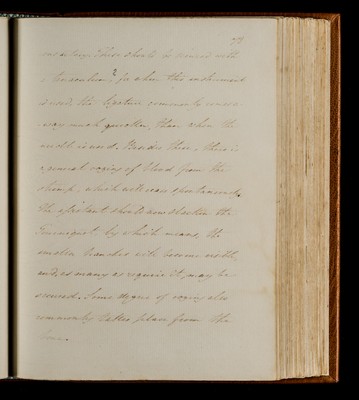 79
in a large. These should be secured with
a tenaculum? for when this instrument
is used, the ligature commonly comes a-
-way much quicker, than when the
needle is used. Besides these, there is
a general oozing of blood from the
stump, which will cease spontaneously.
The assistant should now slacken the
Tourniquet by which means, the
smaller branches will become visible,
and, as many as require it, may be
secured. Some degree of oozing also
commonly takes place from the
bone.